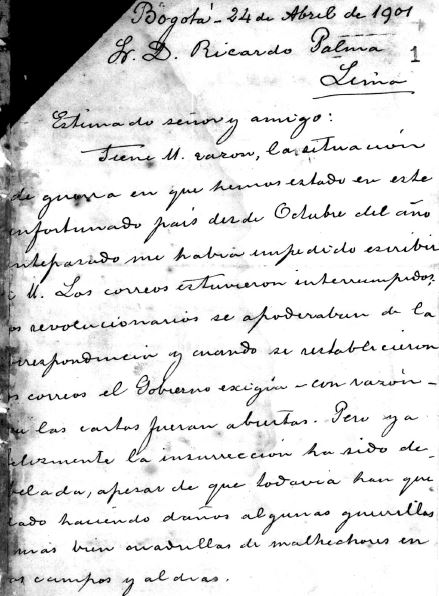 Bogotá - 24 de Abril de 1901
Sr. D. Ricardo Palma
1
Lima
Estimado señor y amigo:
Tiene U. razon, la situación
de guerra en que hemos estado en este
infortunado país desde Octubre del año
antepasado me había impedido escribir
á U. Los correos estuvieron interrumpidos;
os revolucionarios se apoderaban de la
correspondencia y cuando se restablecieron
os correos el Gobierno exigía - con razón -
que las cartas fueran abiertas. Pero ya
felizmente la insurrección ha sido de-
belada, apesar de que todavía han que
dado haciendo daños algunas guerrillas
mas bien cuadrillas de malhechores en
os campos y aldeas.